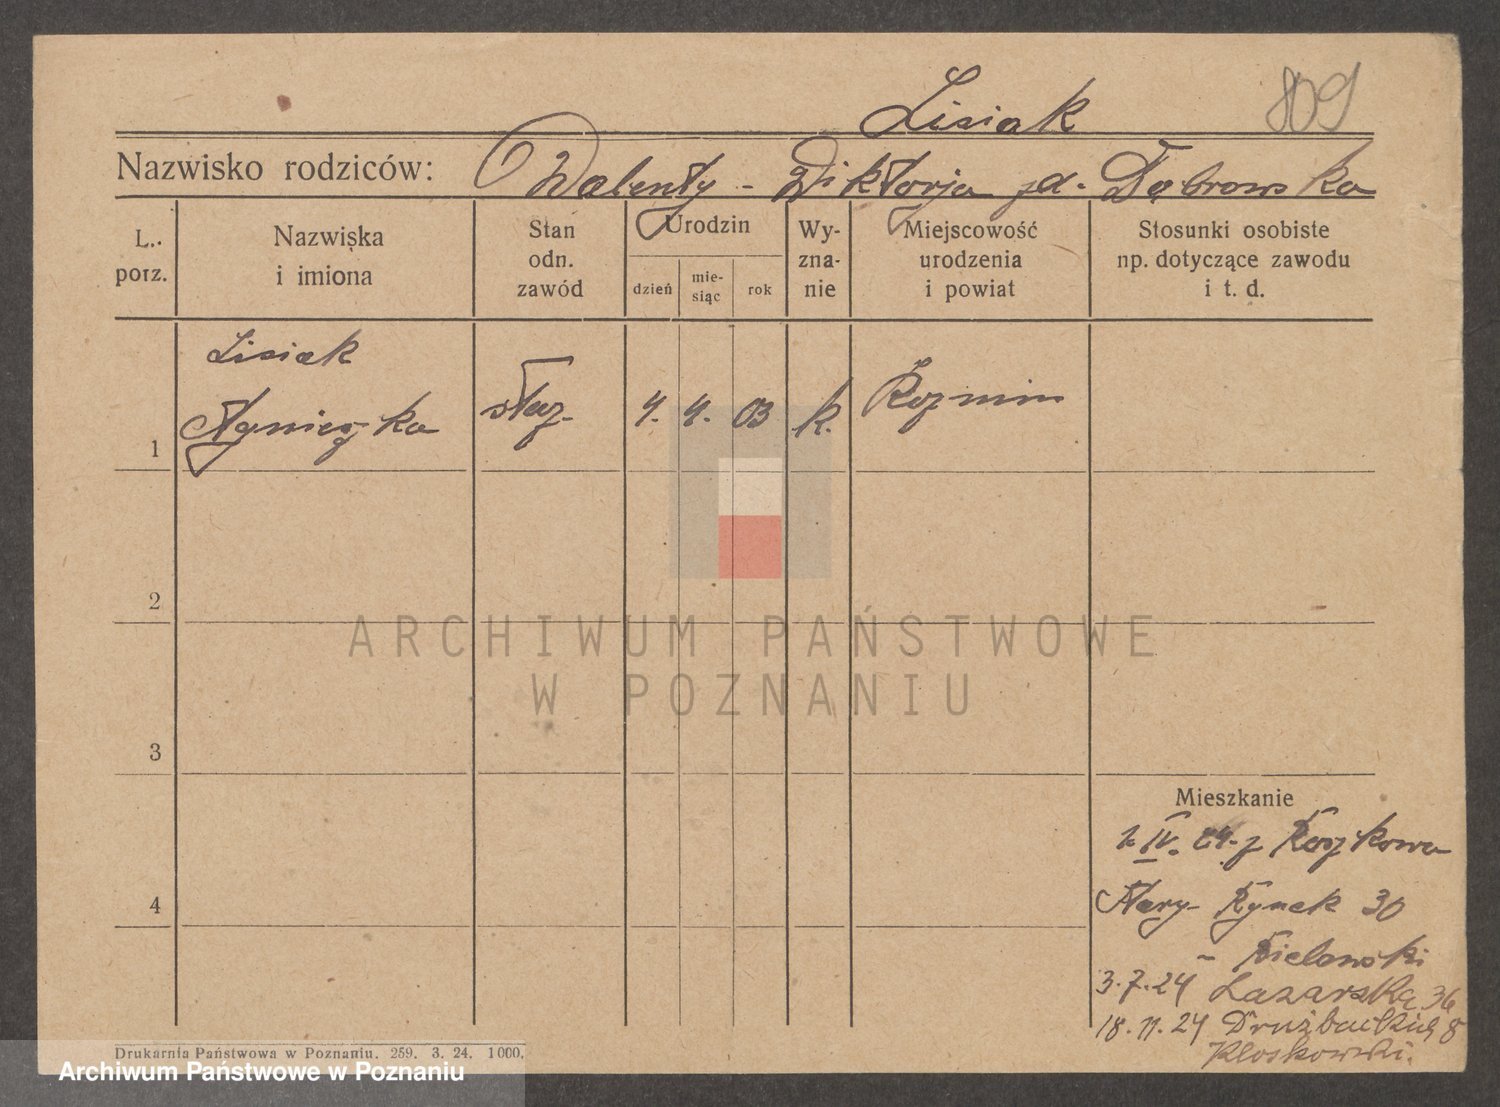 Lisiak 809
Nazwisko rodziców: Walenty - Wiktorja zd. Dąbrowska
L. porz.
Nazwiska i imiona
Stan odn. zawód
Urodzin
dzień miesiąc rok
Wyznanie
Miejscowość urodzenia i powiat
Stosunki osobiste np. dotyczące zawodu i t. d.
Lisiak
1 Agnieszka służ. 4. 4. 03 k. Kozmin
2
3
4
ARCHIWUM PAŃSTWOWE
W POZNANIU
Mieszkanie
1. IV. 24. z Koszkowa
Stary Rynek 30
- Bielawski
3.7.24 Lazarska 36
18.11.24 Drużbackiej 8
Kłoskowski.
Drukarnia Państwowa w Poznaniu. 259. 3. 24. 1000.
Archiwum Państwowe w Poznaniu